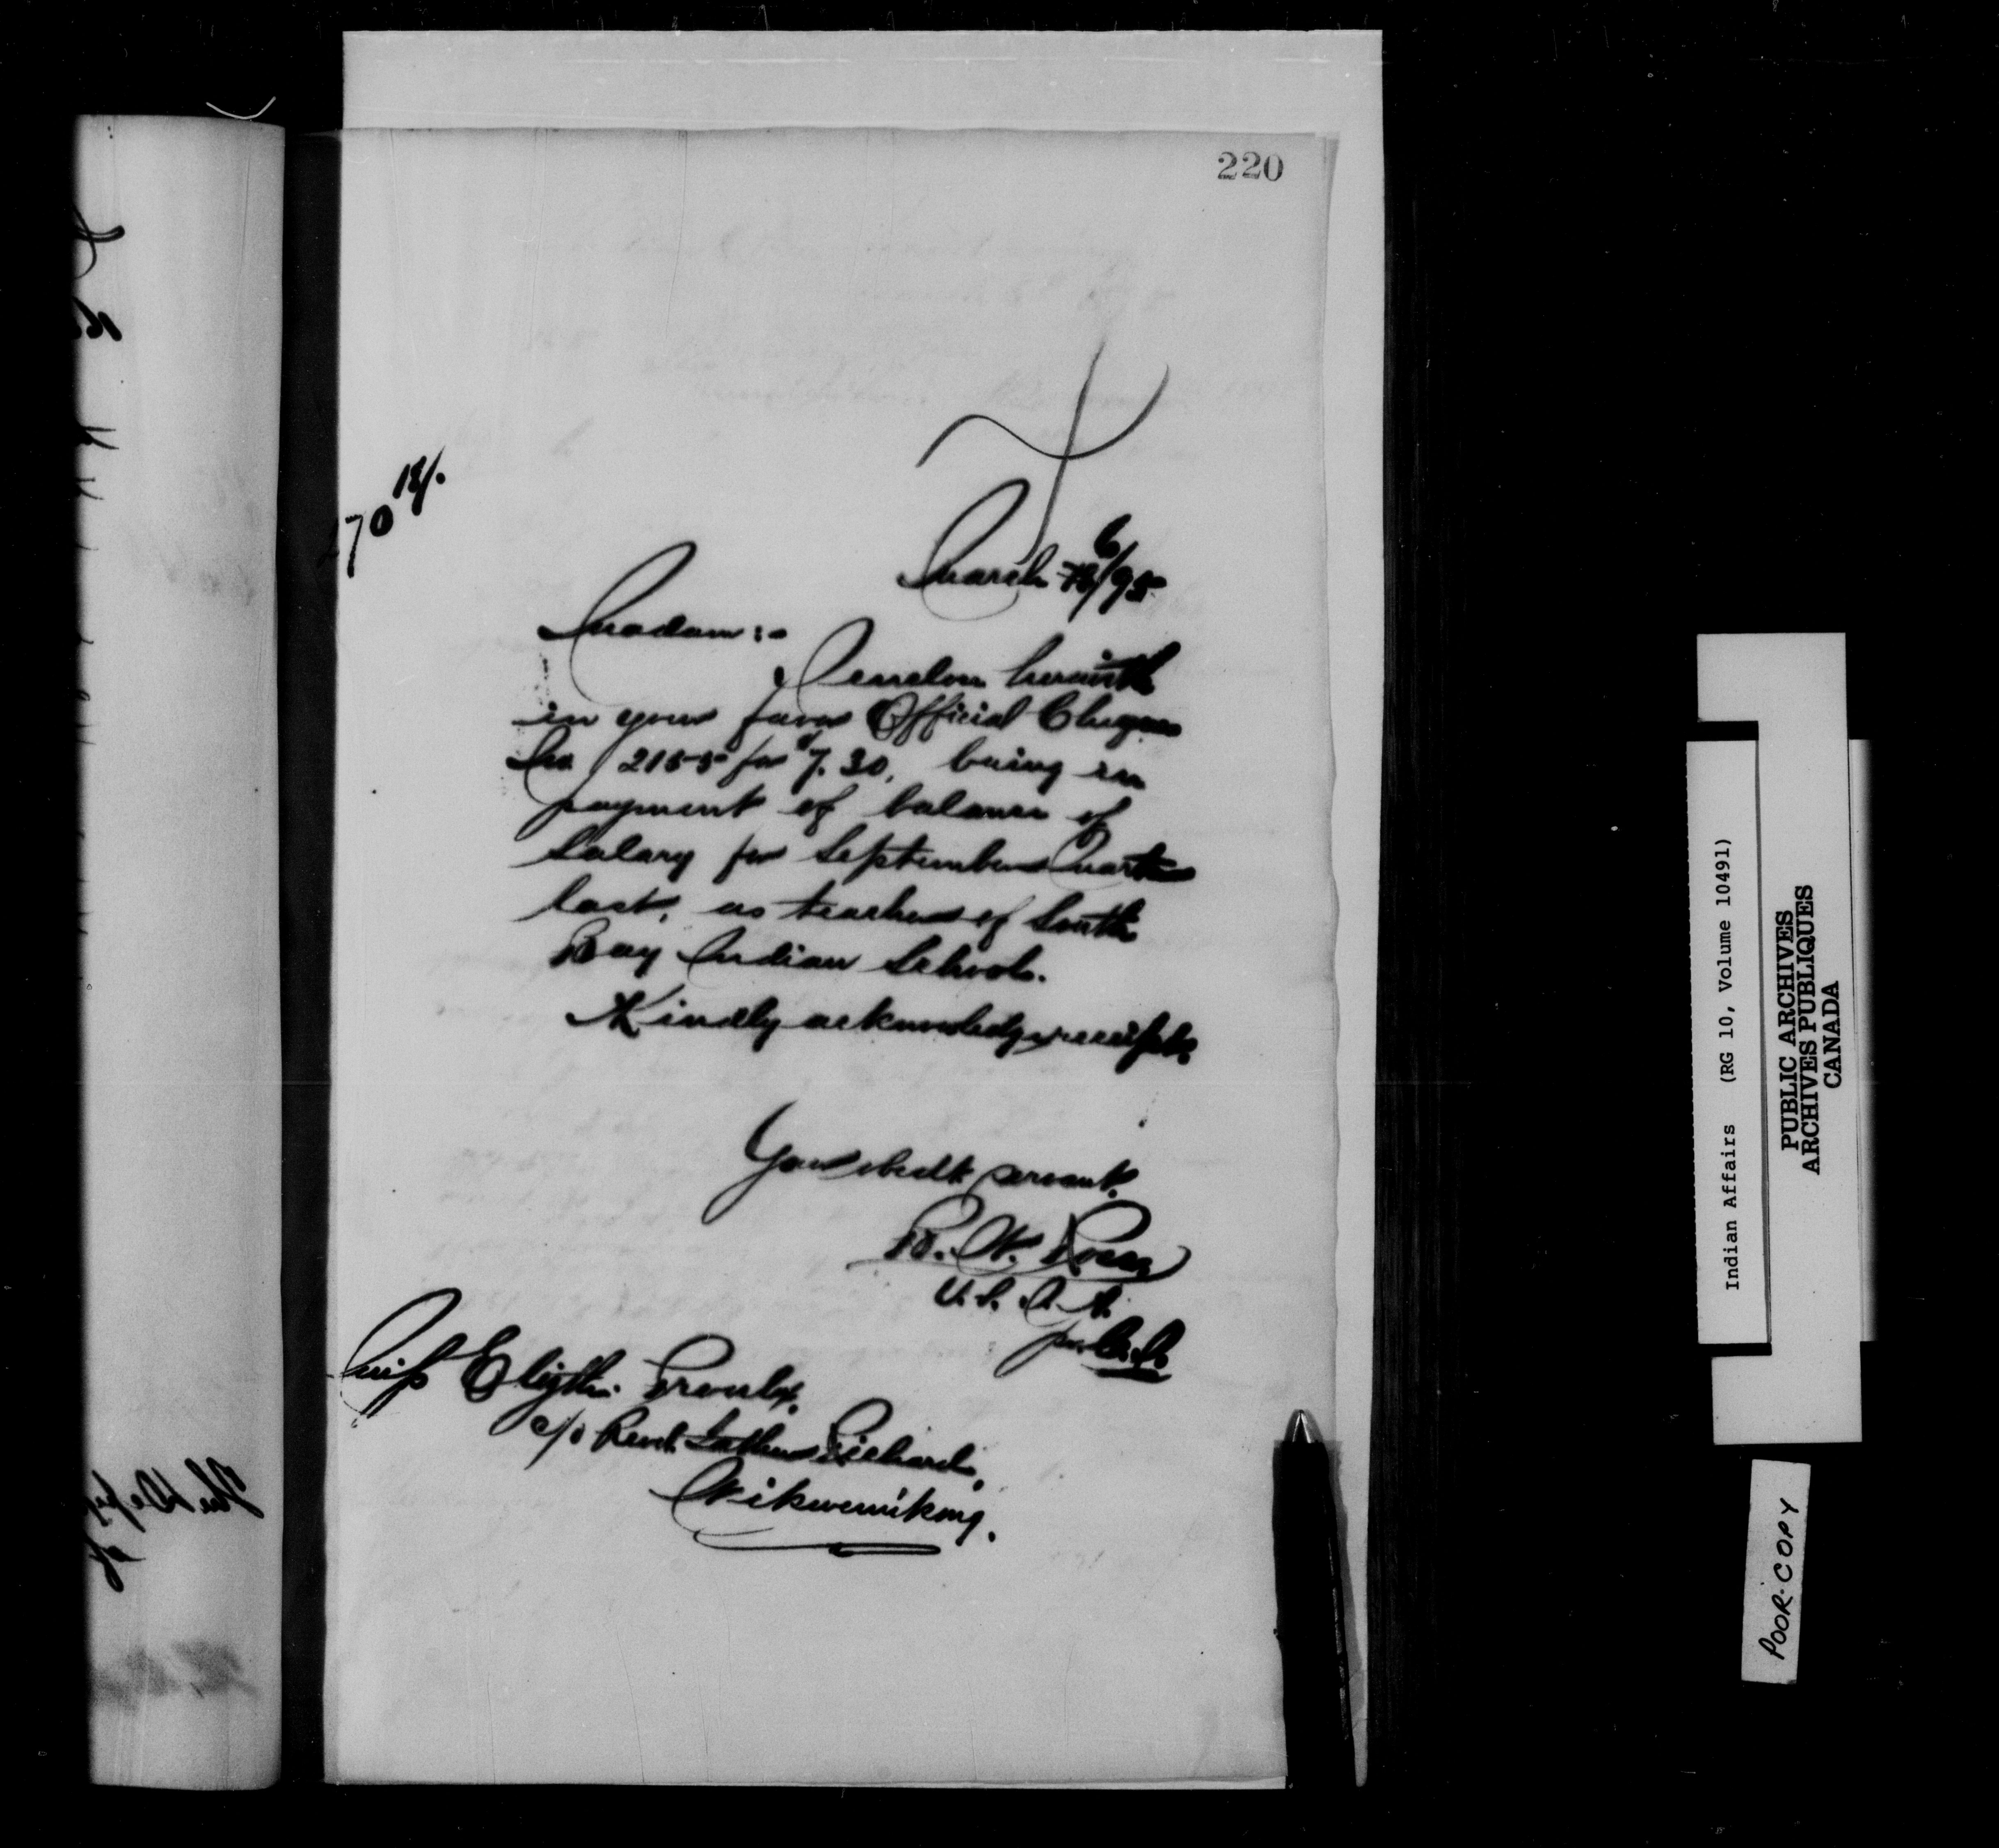 220
70 18/.
March 6/95
Madam:-
I enclose herewith
in your favor Official Cheque
No 2155 for $7.30, being in
payment of balance of
salary for September Quarter
last, as teacher of South
Bay Indian School.
Kindly acknowledge receipt.
Your obedt servant.
B. W. Ross
U.S. I. A.
per
Miss Proulx,
c/o Revd Father Richard,
Wikwemikong.
Indian Affairs (RG 10, Volume 10491)
PUBLIC ARCHIVES
ARCHIVES PUBLIQUES
CANADA
POOR COPY